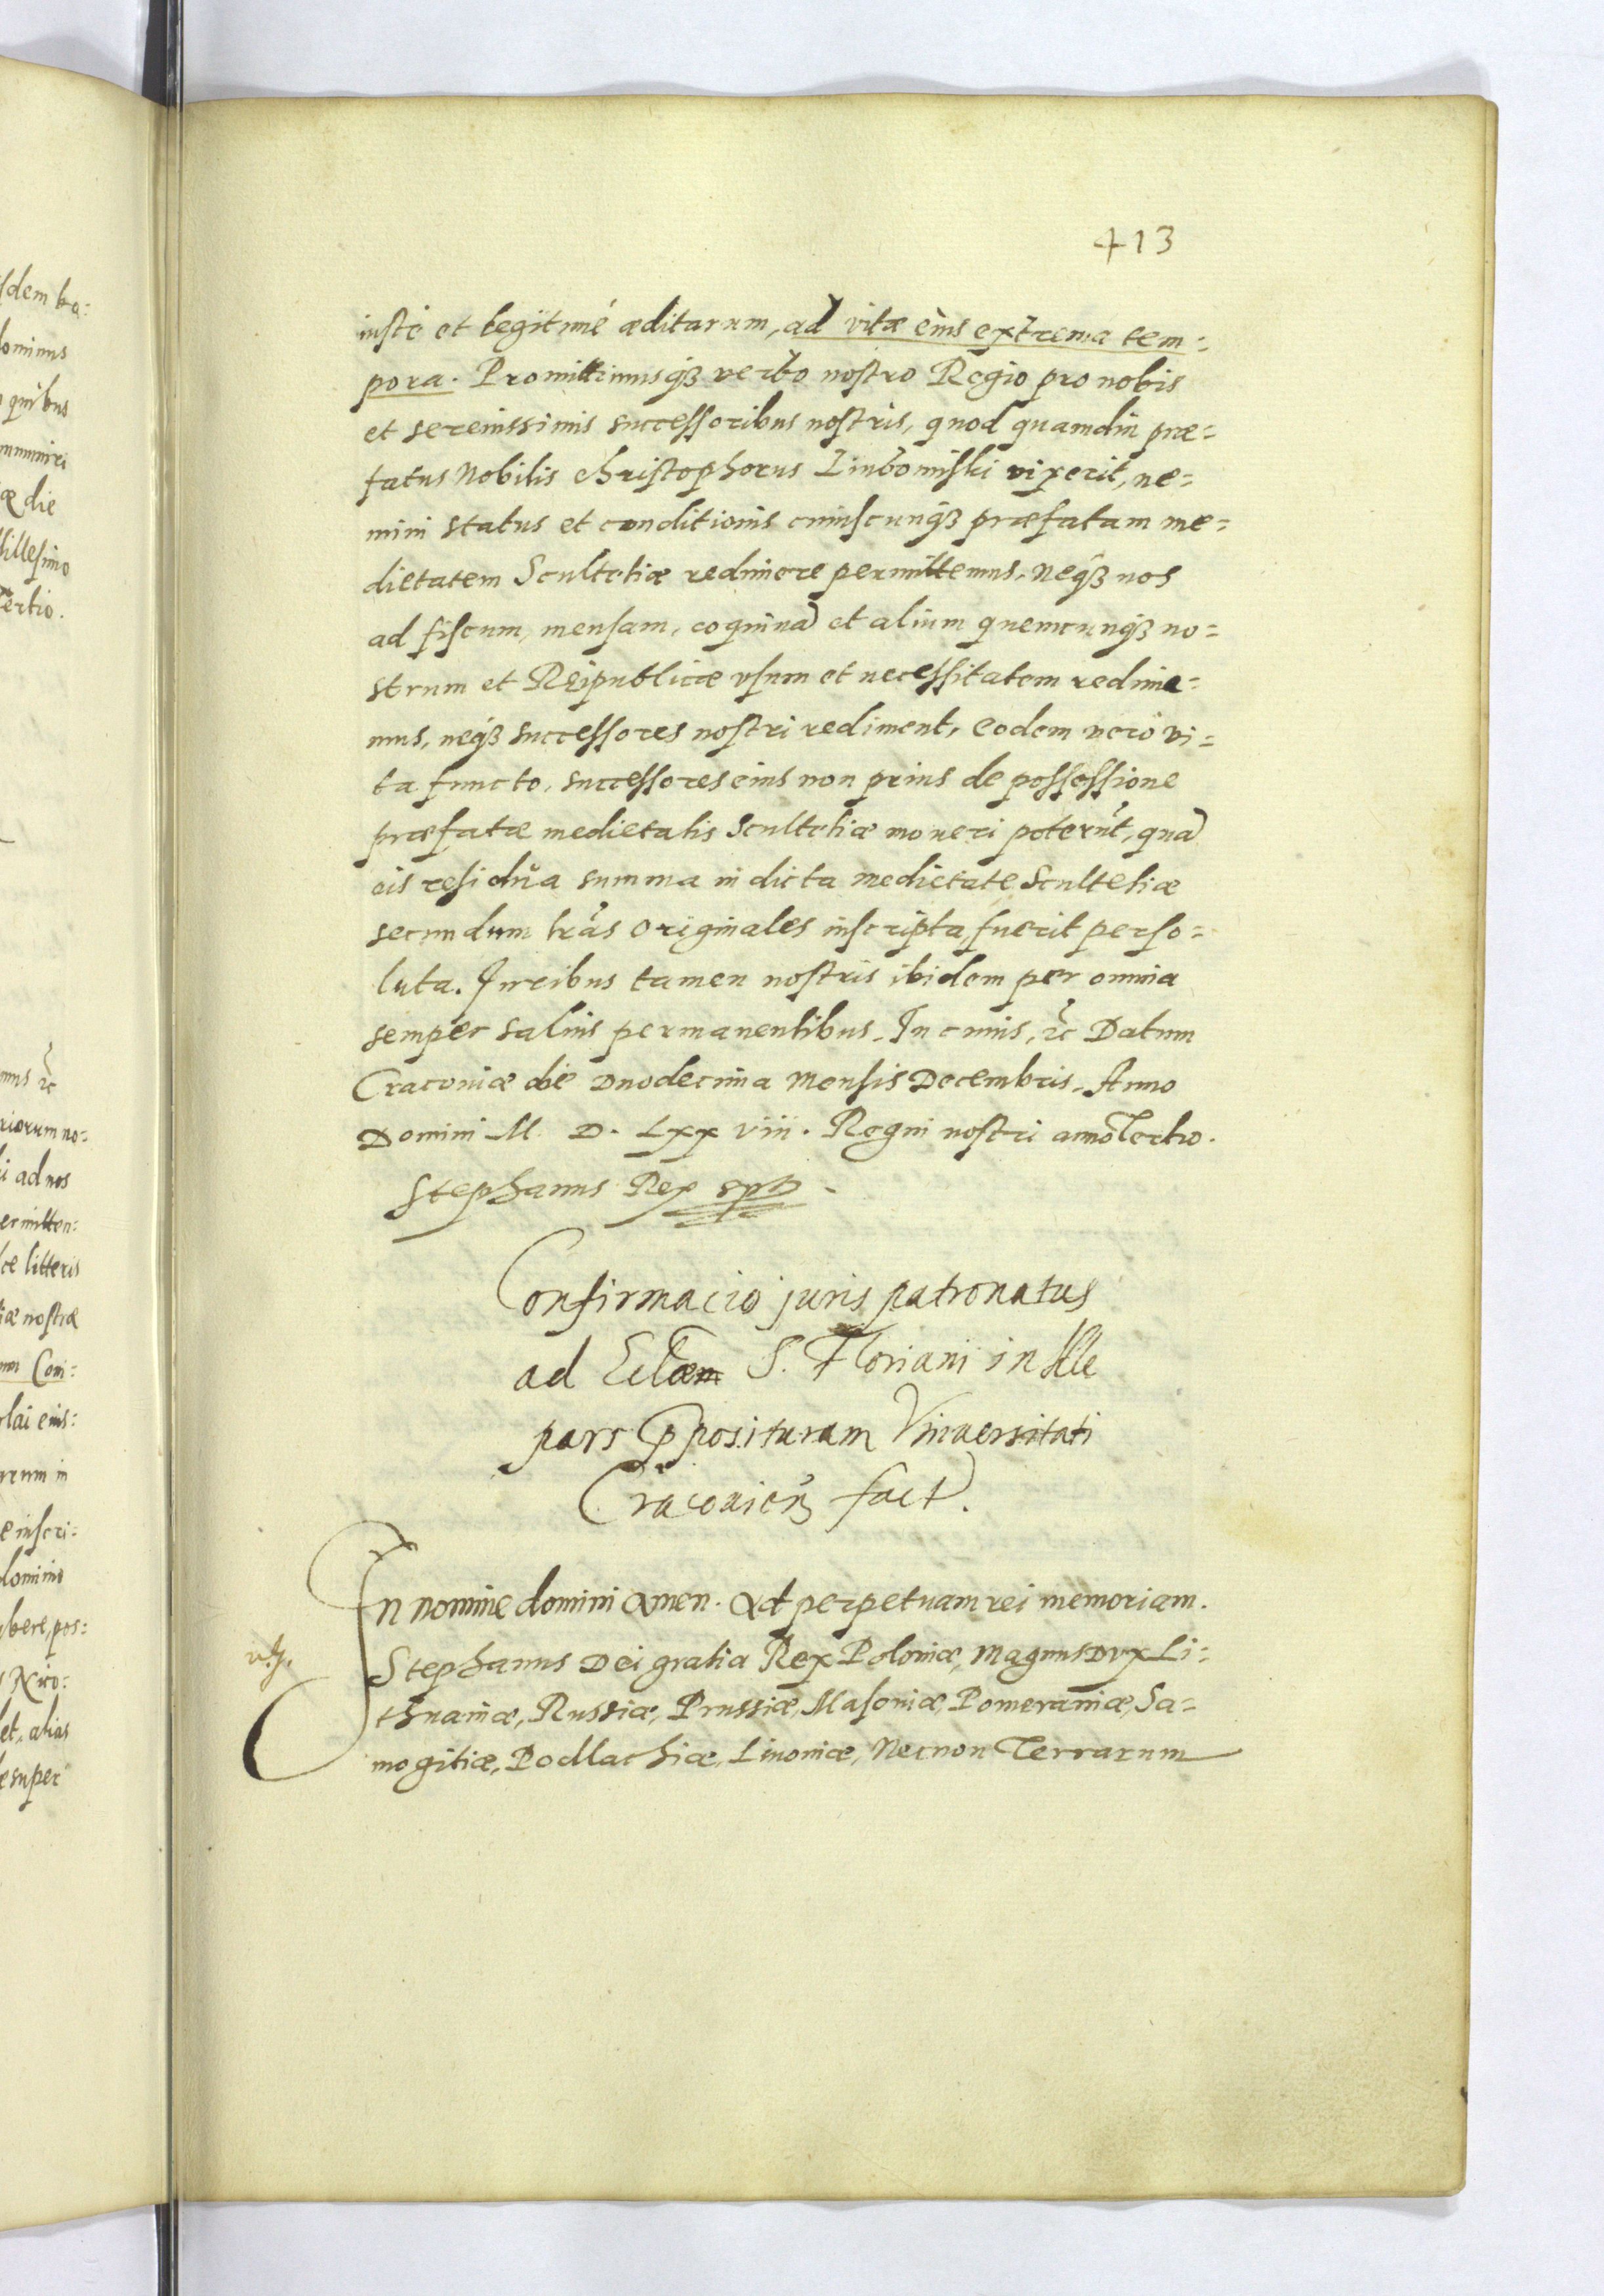 413
iuste et legitimé æditarum, ad vitæ eius extrema tem:
pora. Promittimusq₃ verbo nostro Regio pro nobis
et serenissimis successoribus nostris, quod quamdiu præ=
fatus Nobilis Christophorus Liubomiski vixerit, ne=
mini status et conditionis cuiuscunq₃ præfatam me=
dietatem Scultetiæ redimere permittemus. Neq₃ nos
ad fiscum, mensam, coquinã et alium quemcunq₃ no=
strum et Reipublicæ vsum et necessitatem redime=
mus, neq₃ successores nostri rediment, eodem vero vi=
ta functo, successores eius non prius de possessione
præfatæ medietatis Scultetiæ moveri poterũt, quã
eis residŭa summa in dicta medietate Scultetiæ
secundum lrãs originales inscripta, fuerit perso=
luta. Juribus tamen nostris ibidem per omnia
semper salvis permanentibus. In cuius, ꝛc̃ Datum
Cracoviæ die Duodecima Mensis Decembris. Anno
Domini M. D. Lxx viii. Regni nostri anno Tertio.
Stephanus Rex sp̃t
Confirmacio juris patronatus
ad Ecl̃am S. Floriani in
ꝓposituram Vniversitati
Cracovieñ fact.
In nomine domini Amen. Ad perpetuam rei memoriam.
Stephanus Dei gratia Rex Poloniæ, Magnus Dvx Li=
thuaniæ, Russiæ, Prussiæ, Masoniæ, Pomeraniæ, Sa=
mogitiæ, Podlachiæ, Livoniæ, Necnon Terrarum